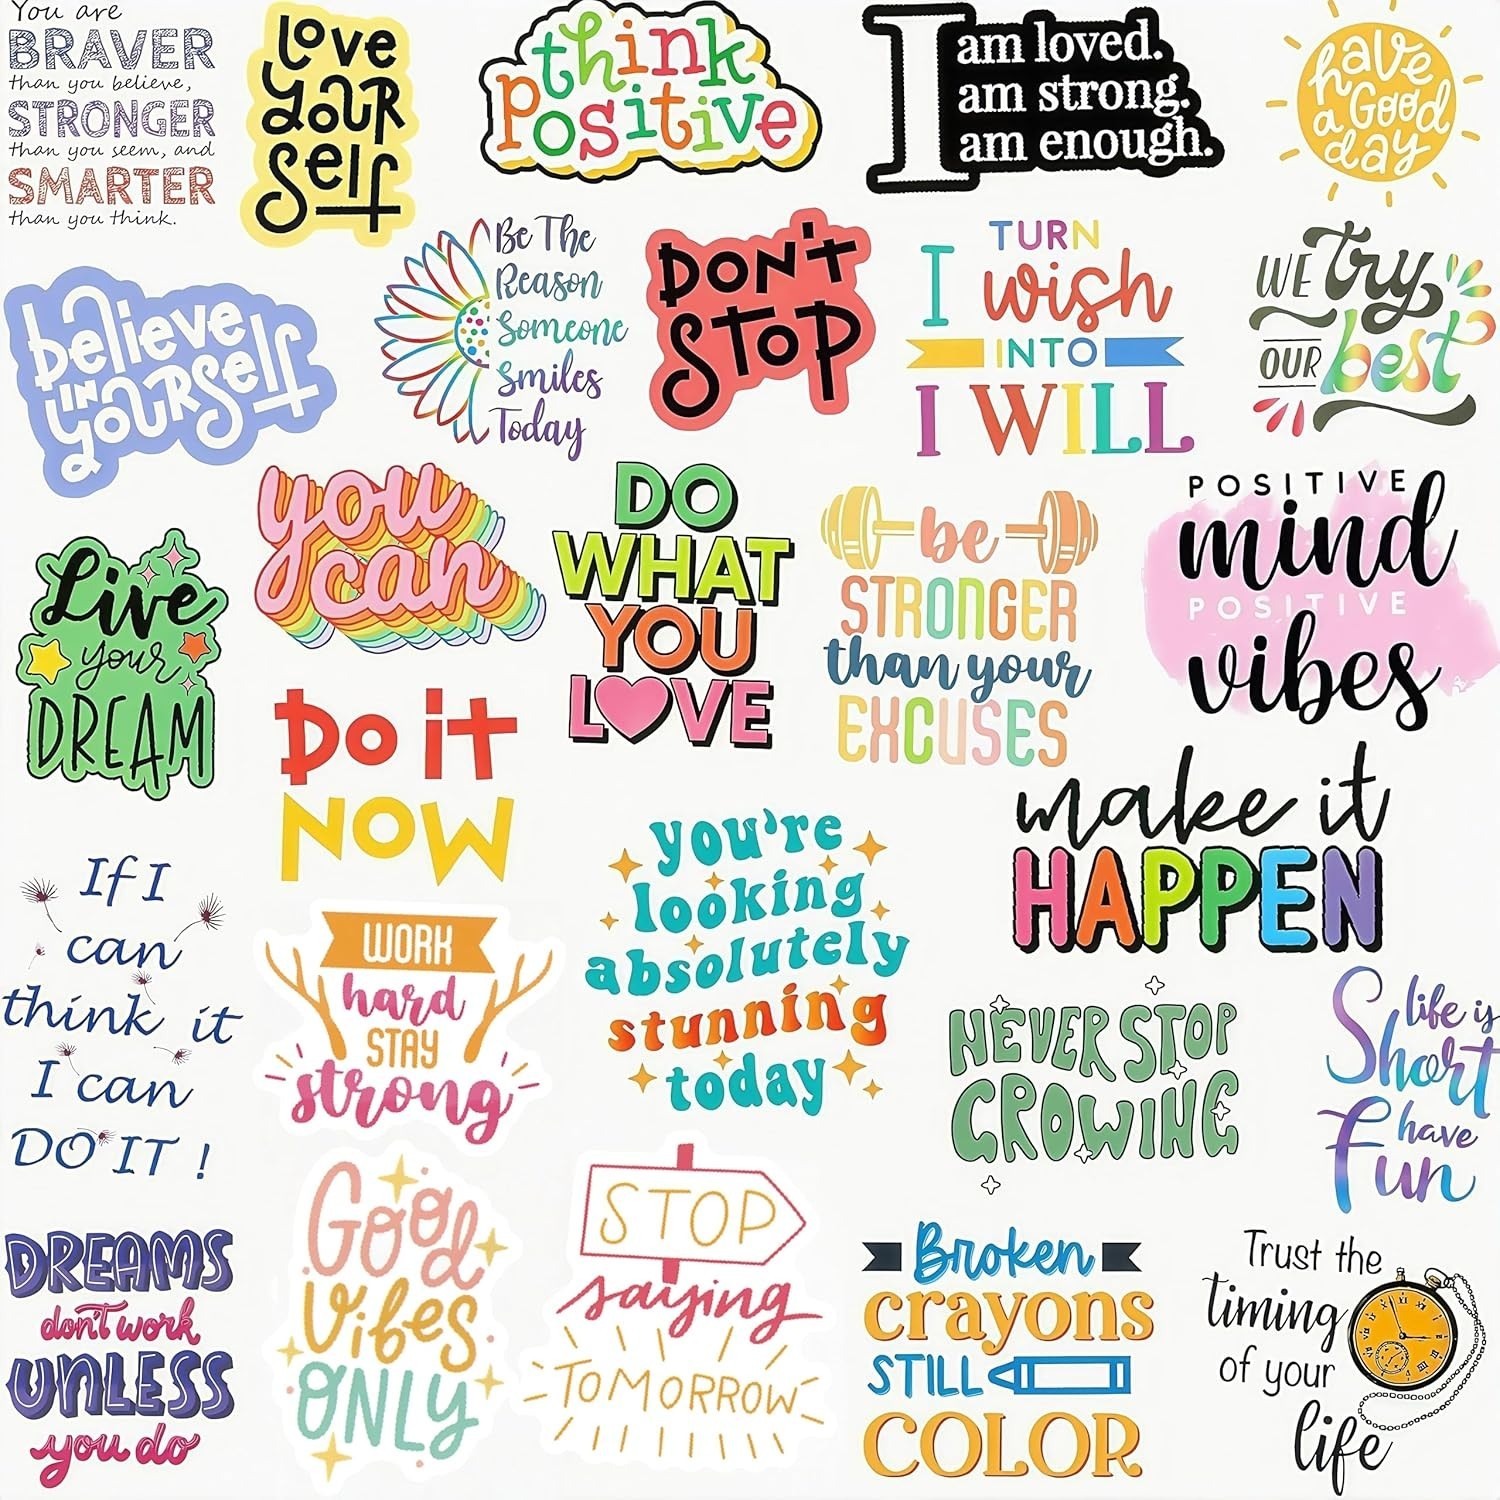 You are
BRAVER
than you believe,
STRONGER
than you seem, and
SMARTER
than you think.
love
your
self
think
positive
I am loved.
am strong.
am enough.
have
a Good
day
believe
IN
yourself
Be The
Reason
Someone
Smiles
Today
DON'T
STOP
TURN
I wish
INTO
I WILL
WE try
OUR best
Live
your
DREAM
you
can
DO
WHAT
YOU
LOVE
be
STRONGER
than your
EXCUSES
POSITIVE
mind
POSITIVE
vibes
Do it
NOW
make it
HAPPEN
If I
can
think it
I can
DO IT !
WORK
hard
STAY
strong
you're
looking
absolutely
stunning
today
NEVER STOP
GROWING
life is
Short
have
Fun
DREAMS
don't work
UNLESS
you do
Good
Vibes
ONLY
STOP
saying
TOMORROW
Broken
crayons
STILL
COLOR
Trust the
timing
of your
life